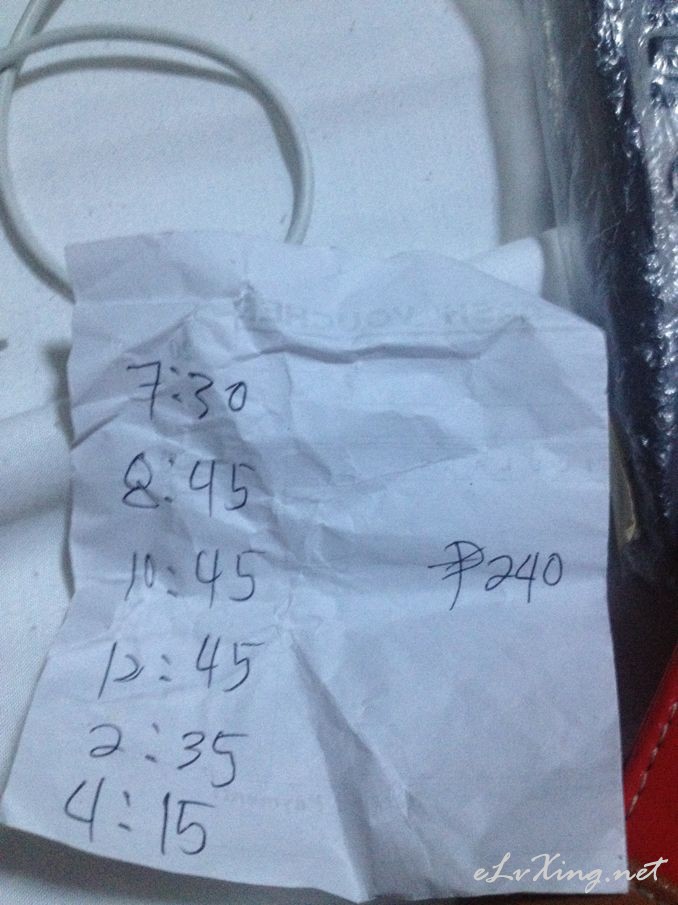 7:30
8:45
10:45
12:45
₱240
2:35
4:15
eLvXing.net